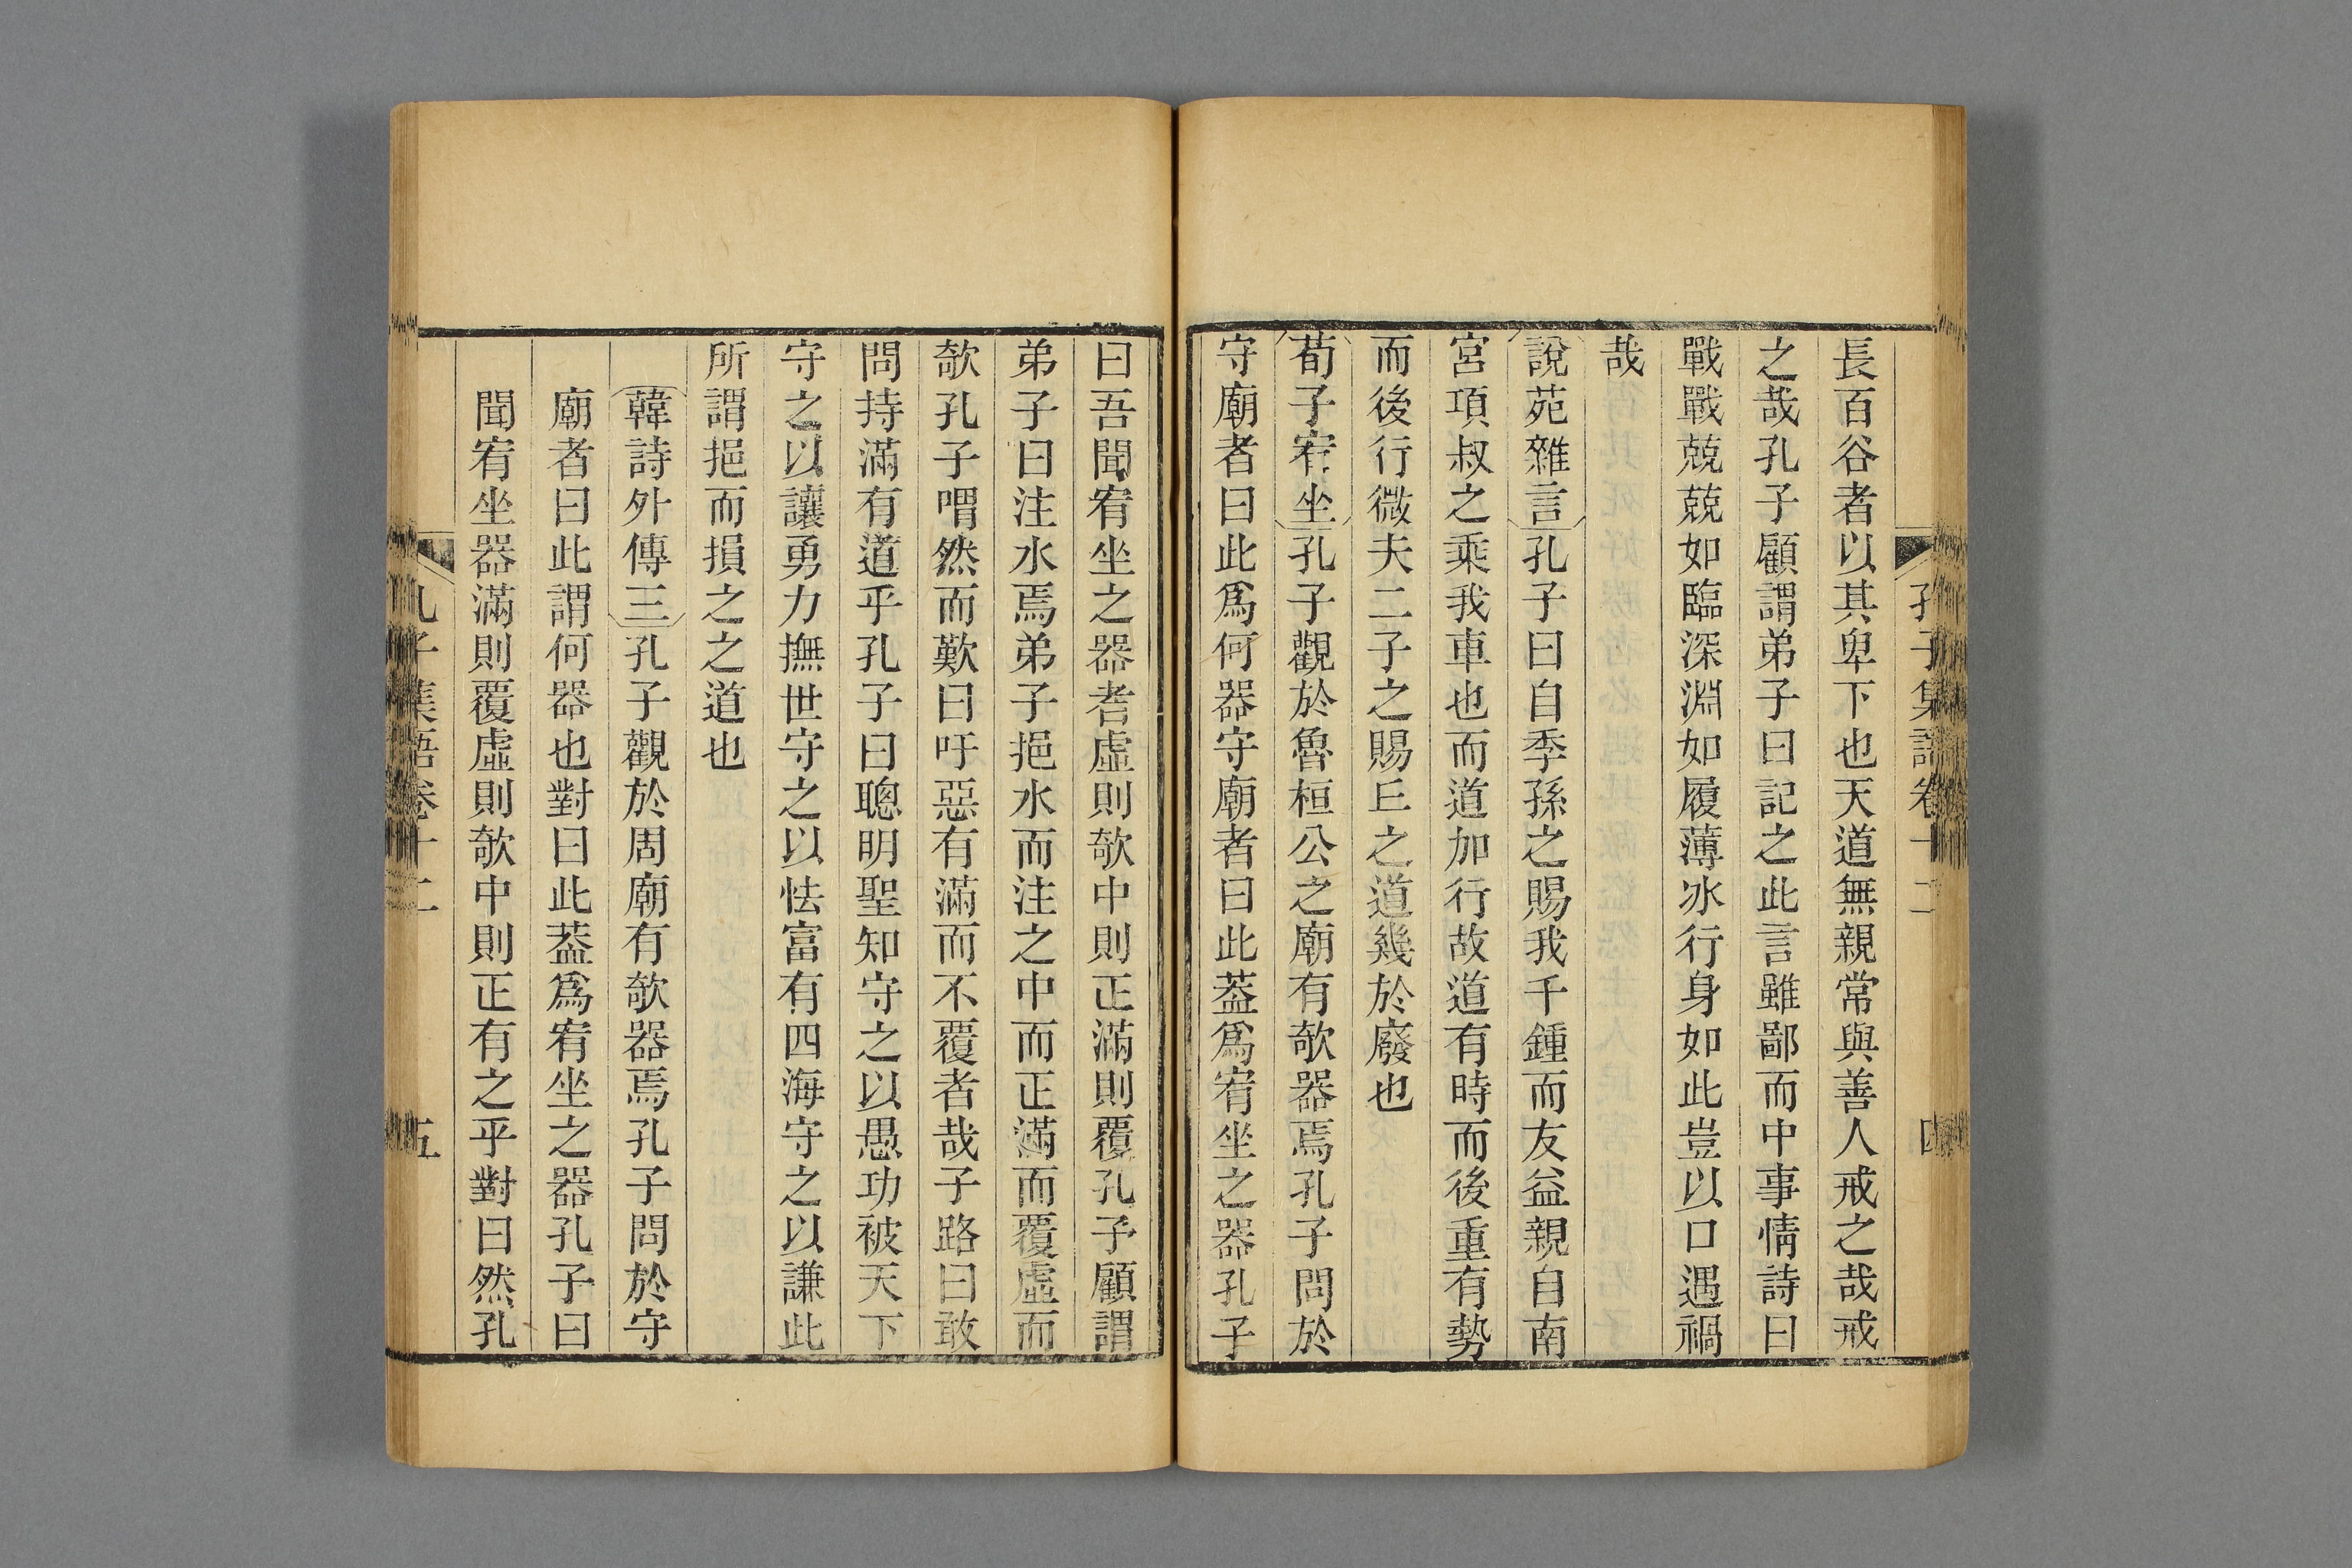 孔子集語卷十二 四
長百谷者以其卑下也天道無親常與善人戒之哉戒
之哉孔子顧謂弟子曰記之此言雖鄙而中事情詩曰
戰戰兢兢如臨深淵如履薄冰行身如此豈以口遇禍
哉
說苑雜言孔子曰自季孫之賜我千鍾而友益親自南
宮項叔之乘我車也而道加行故道有時而後重有勢
而後行微夫二子之賜丘之道幾於廢也
荀子宥坐孔子觀於魯桓公之廟有欹器焉孔子問於
守廟者曰此爲何器守廟者曰此葢爲宥坐之器孔子
曰吾聞宥坐之器者虛則欹中則正滿則覆孔子顧謂
弟子曰注水焉弟子挹水而注之中而正滿而覆虛而
欹孔子喟然而歎曰吁惡有滿而不覆者哉子路曰敢
問持滿有道乎孔子曰聰明聖知守之以愚功被天下
守之以讓勇力撫世守之以怯富有四海守之以謙此
所謂挹而損之之道也
韓詩外傳三孔子觀於周廟有欹器焉孔子問於守
廟者曰此謂何器也對曰此葢爲宥坐之器孔子曰
聞宥坐器滿則覆虛則欹中則正有之乎對曰然孔
孔子集語卷十二 五